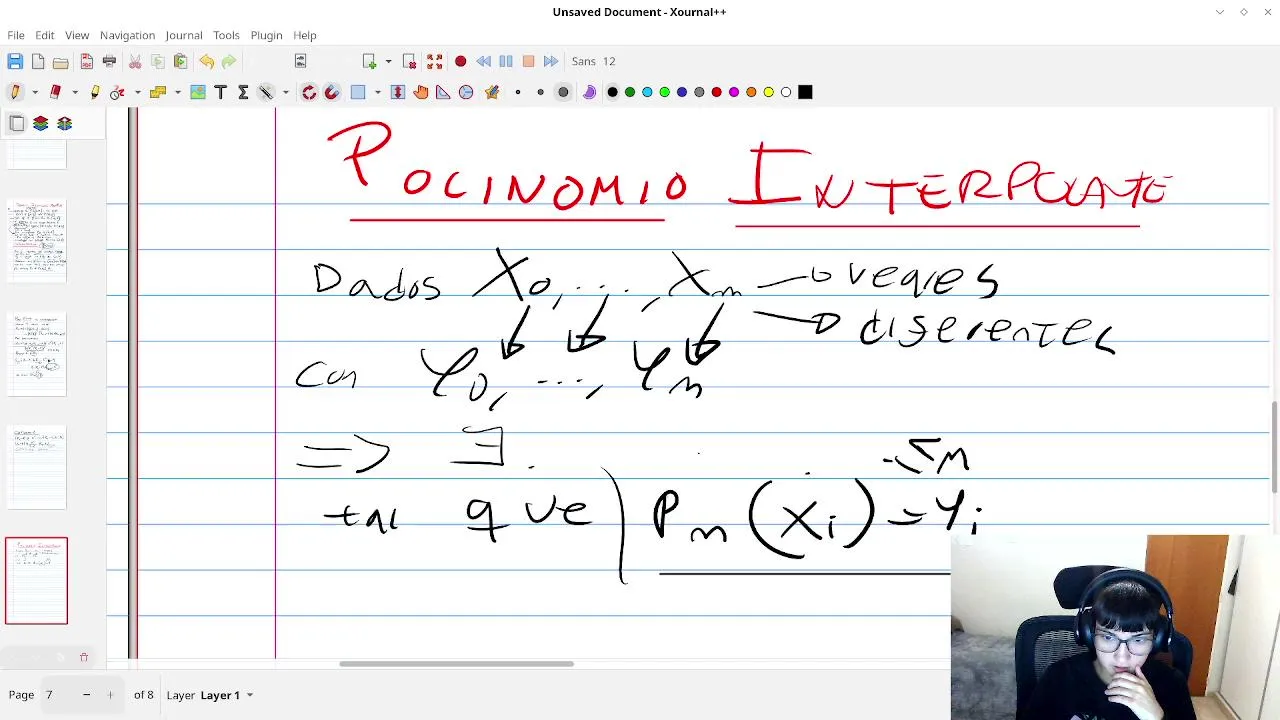 Unsaved Document - Xournal++
File Edit View Navigation Journal Tools Plugin Help
Sans 12
POLINOMIO INTERPOLANTE
Dados X0, ..., Xn → reales
→ diferentes
con Y0, ..., Yn
=> ∃.
≤ n
tal que | Pn(Xi) = Yi
Page 7 - + of 8 Layer Layer 1